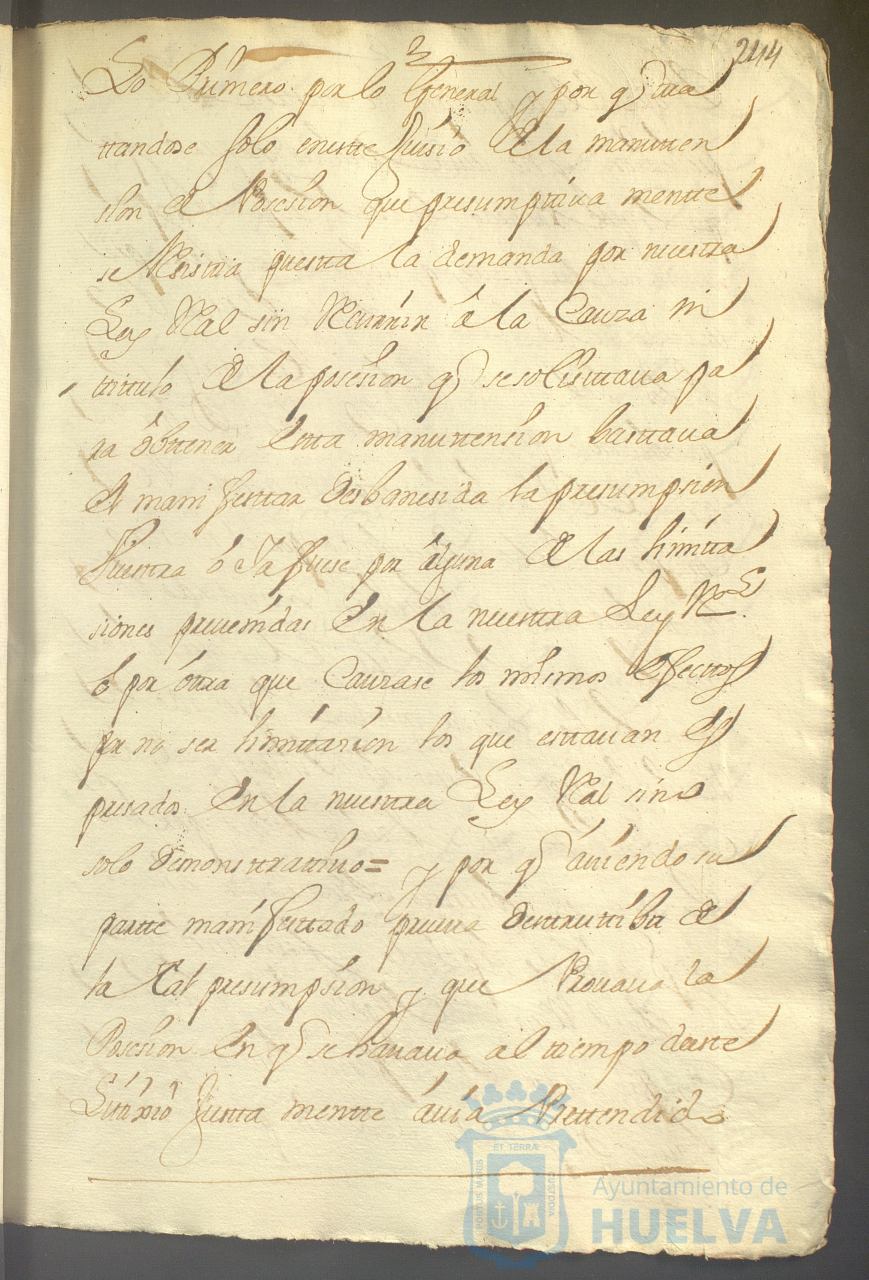 3
244
Lo Primero por lo General y por q tra
ttandose solo en estte Juisio de la manutten
sion de Posesion que presumptiua mentte
se Resistia puesta la demanda por nuestra
Ley Ral sin Recurrir â la Cauza ni
tittulo de la posesion q se solisittaua pa
ra obttener estta manuttension basttaua
el manifesttar desbanesida la presumpsion
Nuestra ó Ya fuese por âlguna de las limitta
siones preuenidas en la nuestra Ley Rl
ó por óttra que Cauzase los mismos efecttos
pr no ser limitasion los que esttauan es
presados en la nuestra Ley Ral sino
solo demonsttrattiuo= y por q áuiendo su
partte manifesttado prueua desttrutiba de
la tal presumpsion y que Prouaua la
Posesion en q se hauaua al tiempo deste
Littixio Juntta mentte áuia Prettendido
PORTUS MARIS
ET TERRAE
CUSTODIA
Ayuntamiento de
HUELVA